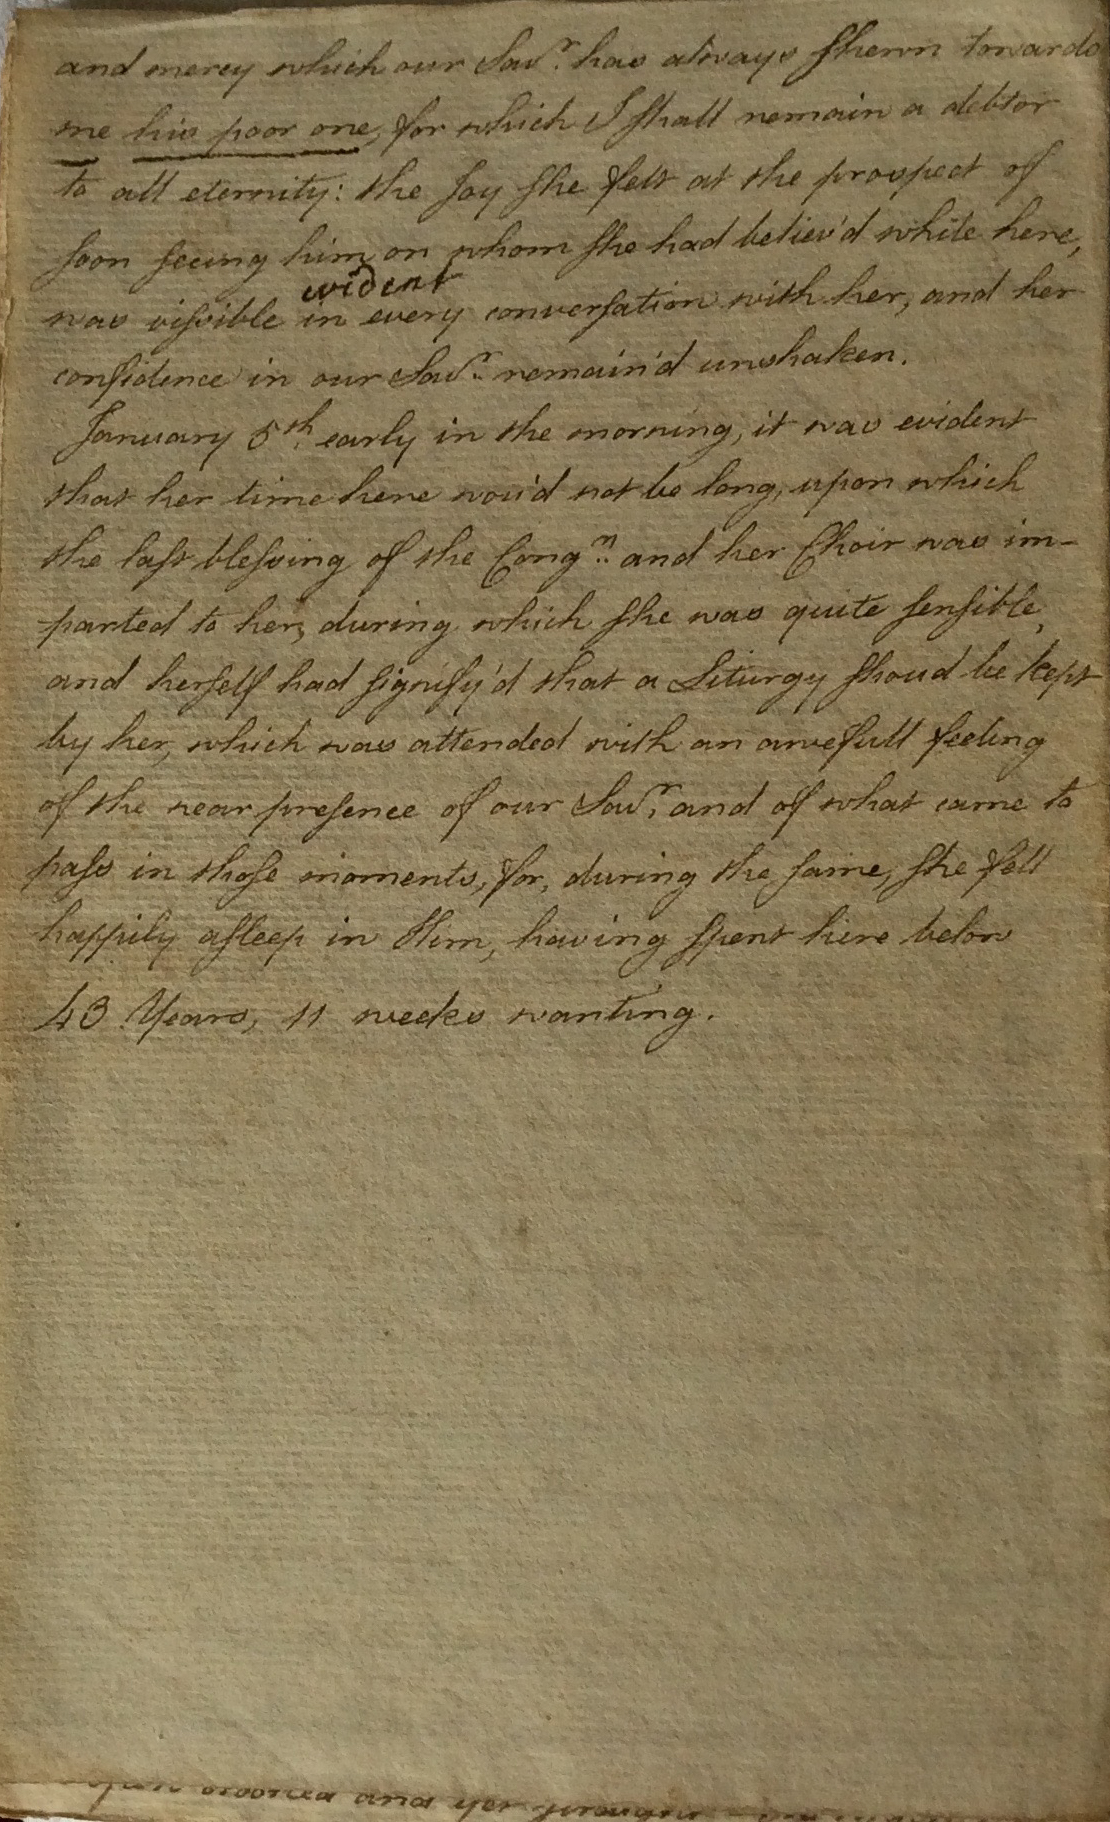 and mercy which our Savr. has always shewn towards
me his poor one, for which I shall remain a debtor
to all eternity: the Joy she felt at the prospect of
soon seeing him on whom she had believ'd while here,
evident
was vissible in every conversation with her, and her
confidence in our Savr. remain'd unshaken.
January 5th. early in the morning, it was evident
that her time here wou'd not be long, upon which
the last blessing of the Congn. and her Choir was im-
parted to her, during which she was quite sensible,
and herself had signify'd that a Liturgy shoud be kept
by her, which was attended with an awefull feeling
of the near presence of our Savr. and of what came to
pass in those moments, for, during the same, she fell
happily asleep in Him, having spent here below
43 Years, 11 weeks wanting.
and yet